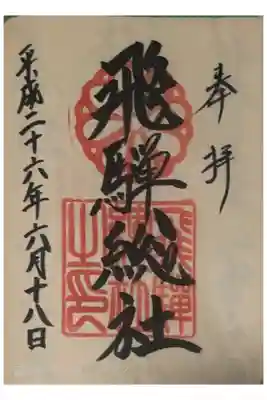 奉拝
飛騨総社
平成二十六年六月十八日